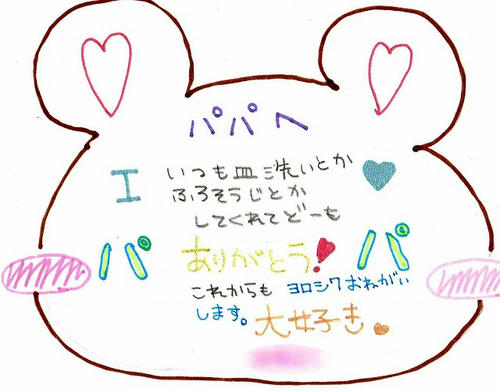 パパへ
いつも皿洗いとか
I ふろそうじとか ♥
してくれてどーも
パ ありがとう! パ
これからも ヨロシクおねがい
します。大好き